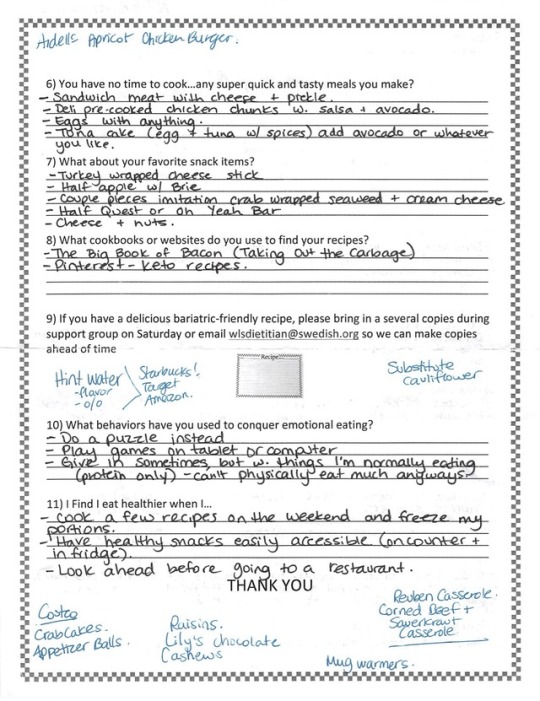 Aidells Apricot Chicken Burger.
6) You have no time to cook...any super quick and tasty meals you make?
- Sandwich meat with cheese + pickle.
- Deli pre-cooked chicken chunks w. salsa + avocado.
- Eggs with anything.
- Tuna cake (egg + tuna w/ spices) add avocado or whatever
you like.
7) What about your favorite snack items?
- Turkey wrapped cheese stick
- Half apple w/ Brie
- Couple pieces imitation crab wrapped seaweed + cream cheese
- Half Quest or Oh Yeah Bar
- Cheese + nuts.
8) What cookbooks or websites do you use to find your recipes?
- The Big Book of Bacon (Taking Out the Carbage)
- Pinterest - keto recipes.
9) If you have a delicious bariatric-friendly recipe, please bring in a several copies during
support group on Saturday or email wlsdietitian@swedish.org so we can make copies
ahead of time
Recipe
Hint Water
- flavor
- 0/0
Starbucks!
Target
Amazon.
Substitute
Cauliflower
10) What behaviors have you used to conquer emotional eating?
- Do a puzzle instead
- Play games on tablet or computer
- Give in sometimes, but w. things I'm normally eating
(protein only) - can't physically eat much anyways.
11) I Find I eat healthier when I...
- Cook a few recipes on the weekend and freeze my
portions.
- Have healthy snacks easily accessible (on counter +
in fridge).
- Look ahead before going to a restaurant.
THANK YOU
Costco
Crab Cakes.
Appetizer Balls.
Raisins.
Lily's chocolate
Cashews
Reuben Casserole.
Corned Beef +
Sauerkraut
Casserole
Mug warmers.